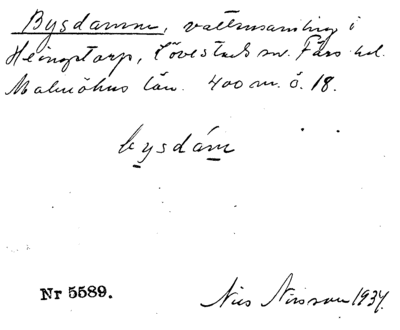 Bysdamm, vattensamling i
Heingetorp, Lövestads sn. Färs hd.
Malmöhus län. 400 m. ö. 18.
bysdám
Nr 5589.
Nils Nilsson 1934.